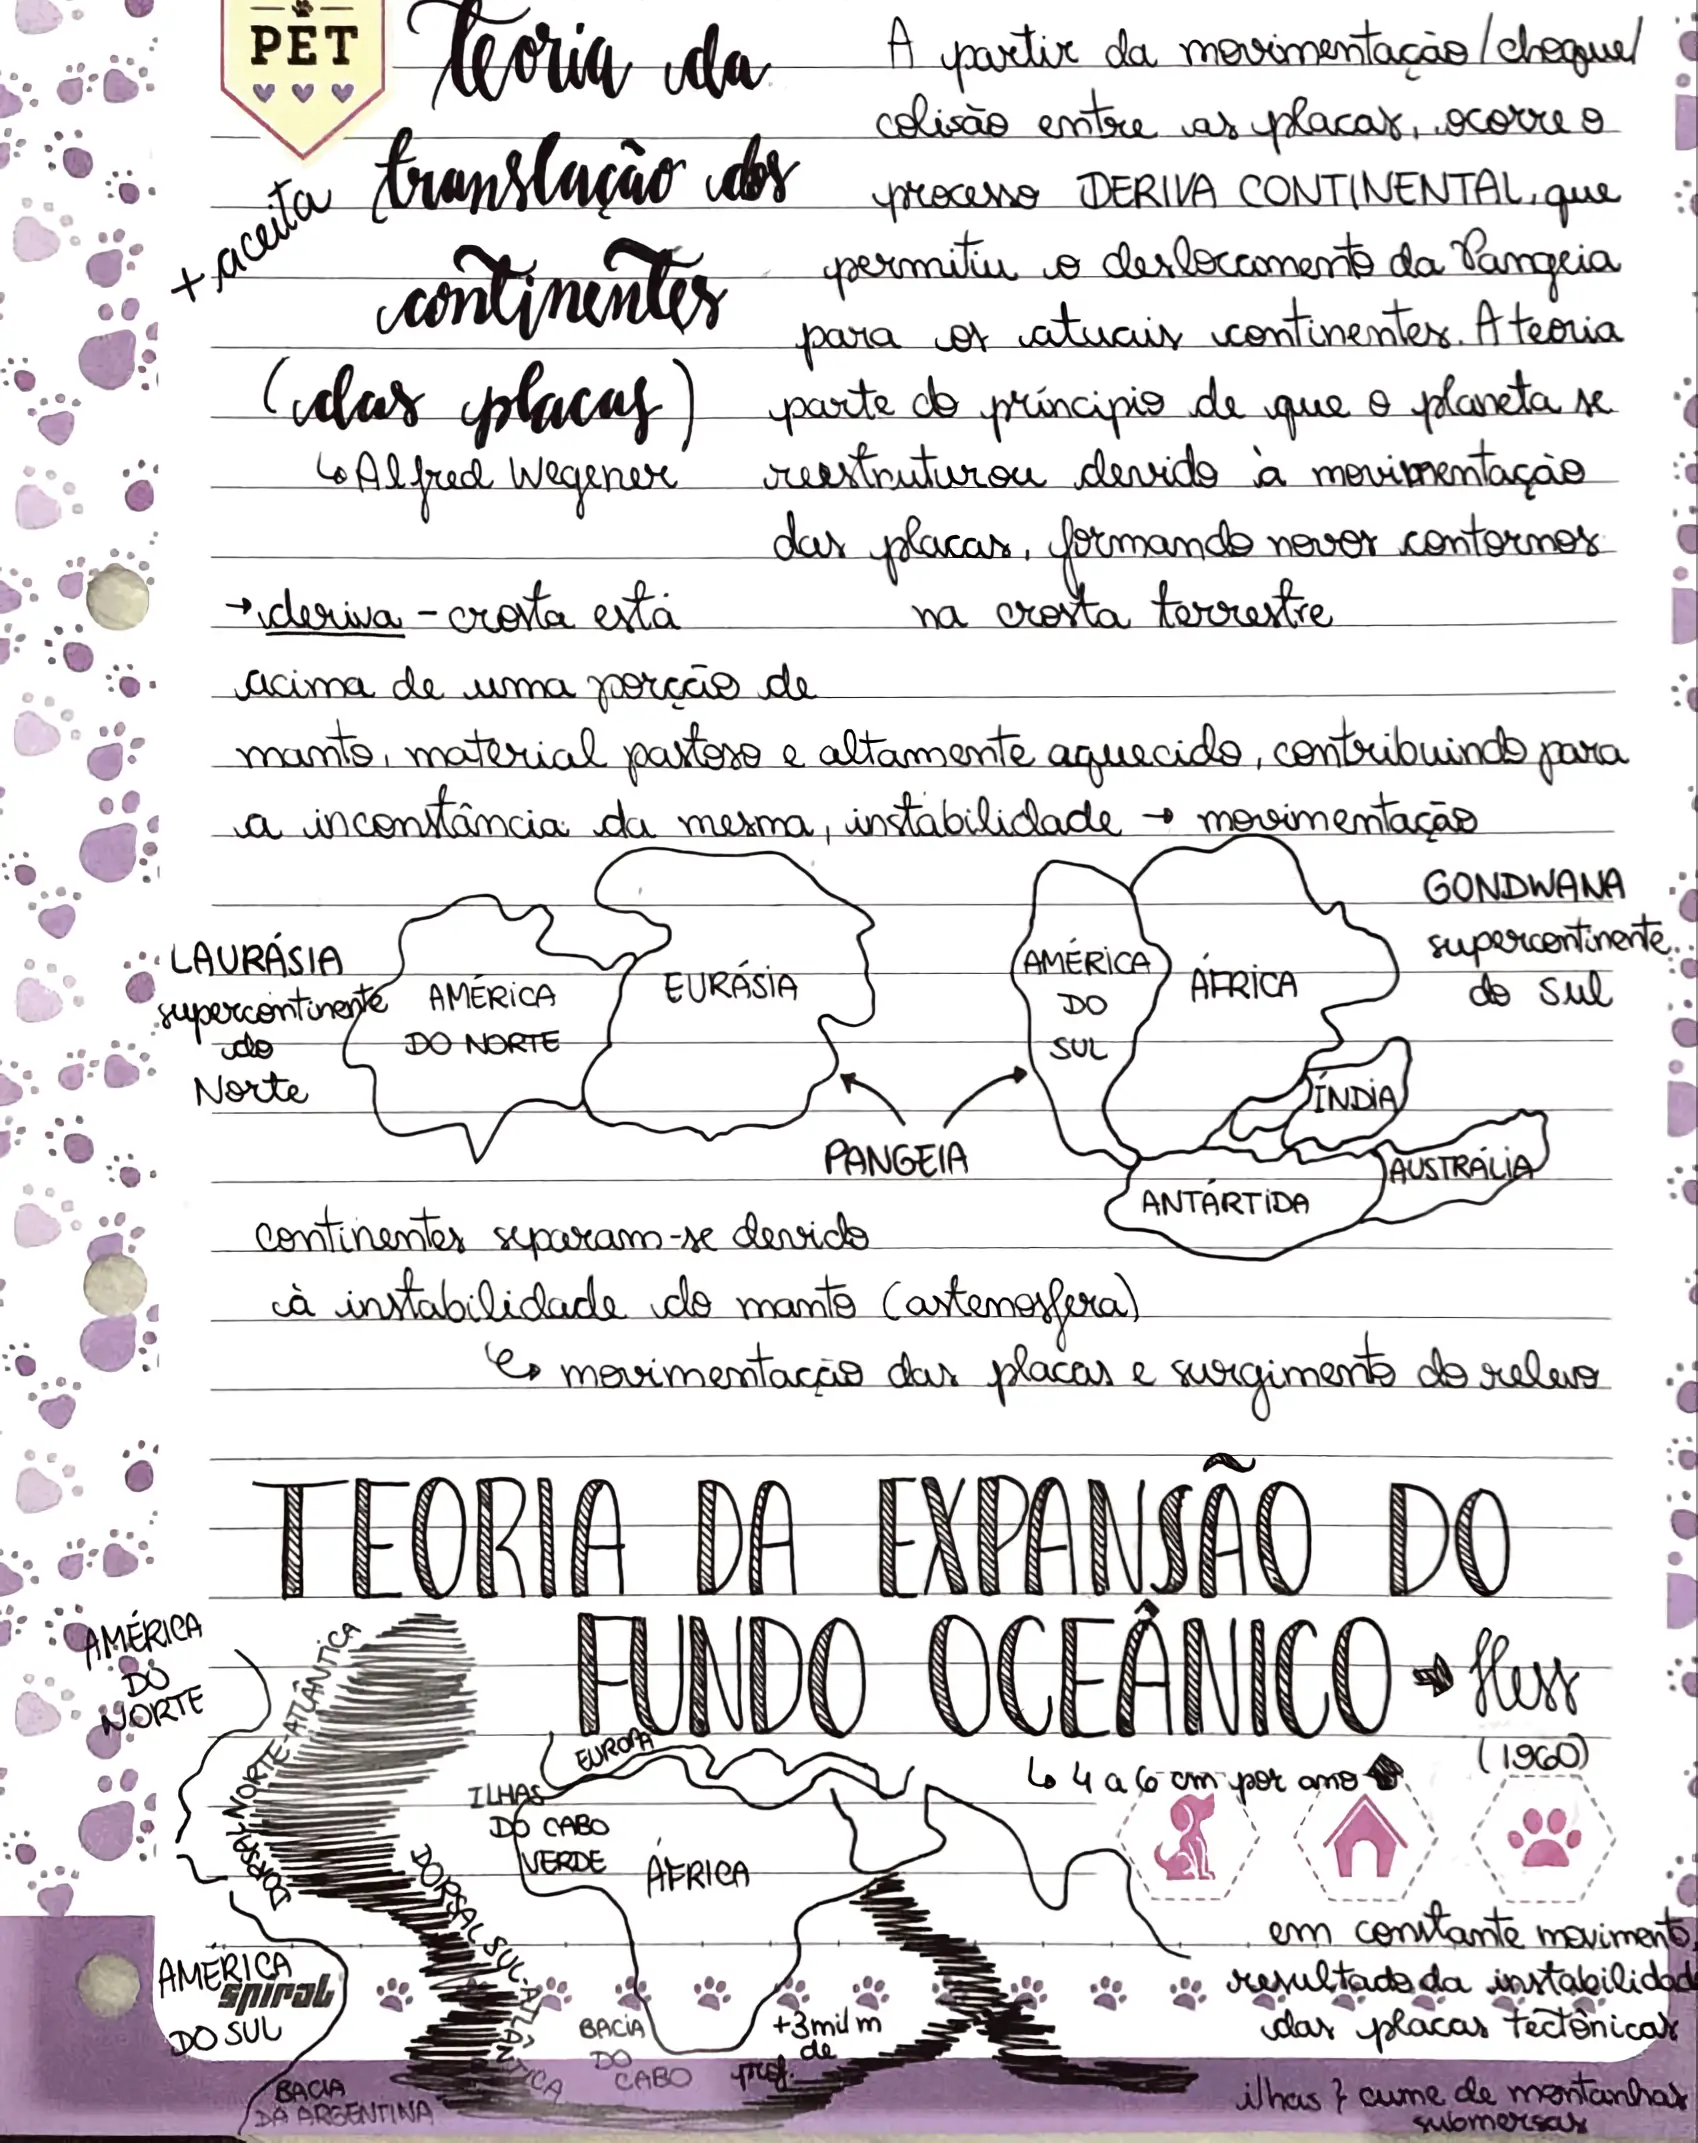 PET
Teoria da
translação dos
continentes
(das placas)
+ aceita
↳ Alfred Wegener
A partir da movimentação/choque/
colisão entre as placas, ocorre o
processo DERIVA CONTINENTAL, que
permitiu o deslocamento da Pangeia
para os atuais continentes. A teoria
parte do príncipio de que o planeta se
reestruturou devido à movimentação
das placas, formando novos contornos
na crosta terrestre
→ deriva - crosta está
acima de uma porção de
manto, material pastoso e altamente aquecido, contribuindo para
a inconstância da mesma, instabilidade → movimentação
LAURÁSIA
supercontinente
do
Norte
AMÉRICA
DO NORTE
EURÁSIA
AMÉRICA
DO
SUL
ÁFRICA
GONDWANA
supercontinente
do Sul
ÍNDIA
PANGEIA
AUSTRÁLIA
ANTÁRTIDA
continentes separam-se devido
à instabilidade do manto (astenosfera)
↳ movimentação das placas e surgimento do relevo
TEORIA DA EXPANSÃO DO
FUNDO OCEÂNICO → Hess
(1960)
↳ 4 a 6 cm por ano
AMÉRICA
DO
NORTE
DORSAL NORTE-ATLÂNTICA
EUROPA
ILHAS
DO CABO
VERDE
ÁFRICA
DORSAL SUL-ATLÂNTICA
AMÉRICA
spiral
DO SUL
BACIA
DO
CABO
+3mil m
de
prof.
BACIA
DA ARGENTINA
em constante movimento,
resultado da instabilidade
das placas tectônicas
ilhas } cume de montanhas
submersas